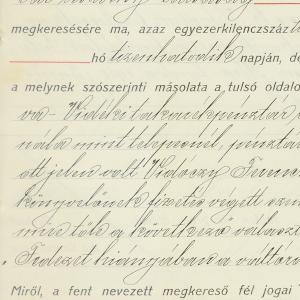 megkeresésére ma, azaz egyezerkilenczszáz
hó tizenhatodik napján, dé
a melynek szószerinti másolata a tulsó oldalo
va- Vidéki takarékpénztár
nála mint telepesnél, pénztár
ott jelen volt Vidóczy Feren
könyvelőnek fizetés végett
mire tőle a következő választ
Fedezet hiányában a váltóra
Miről, a fent nevezett megkereső fél jogai